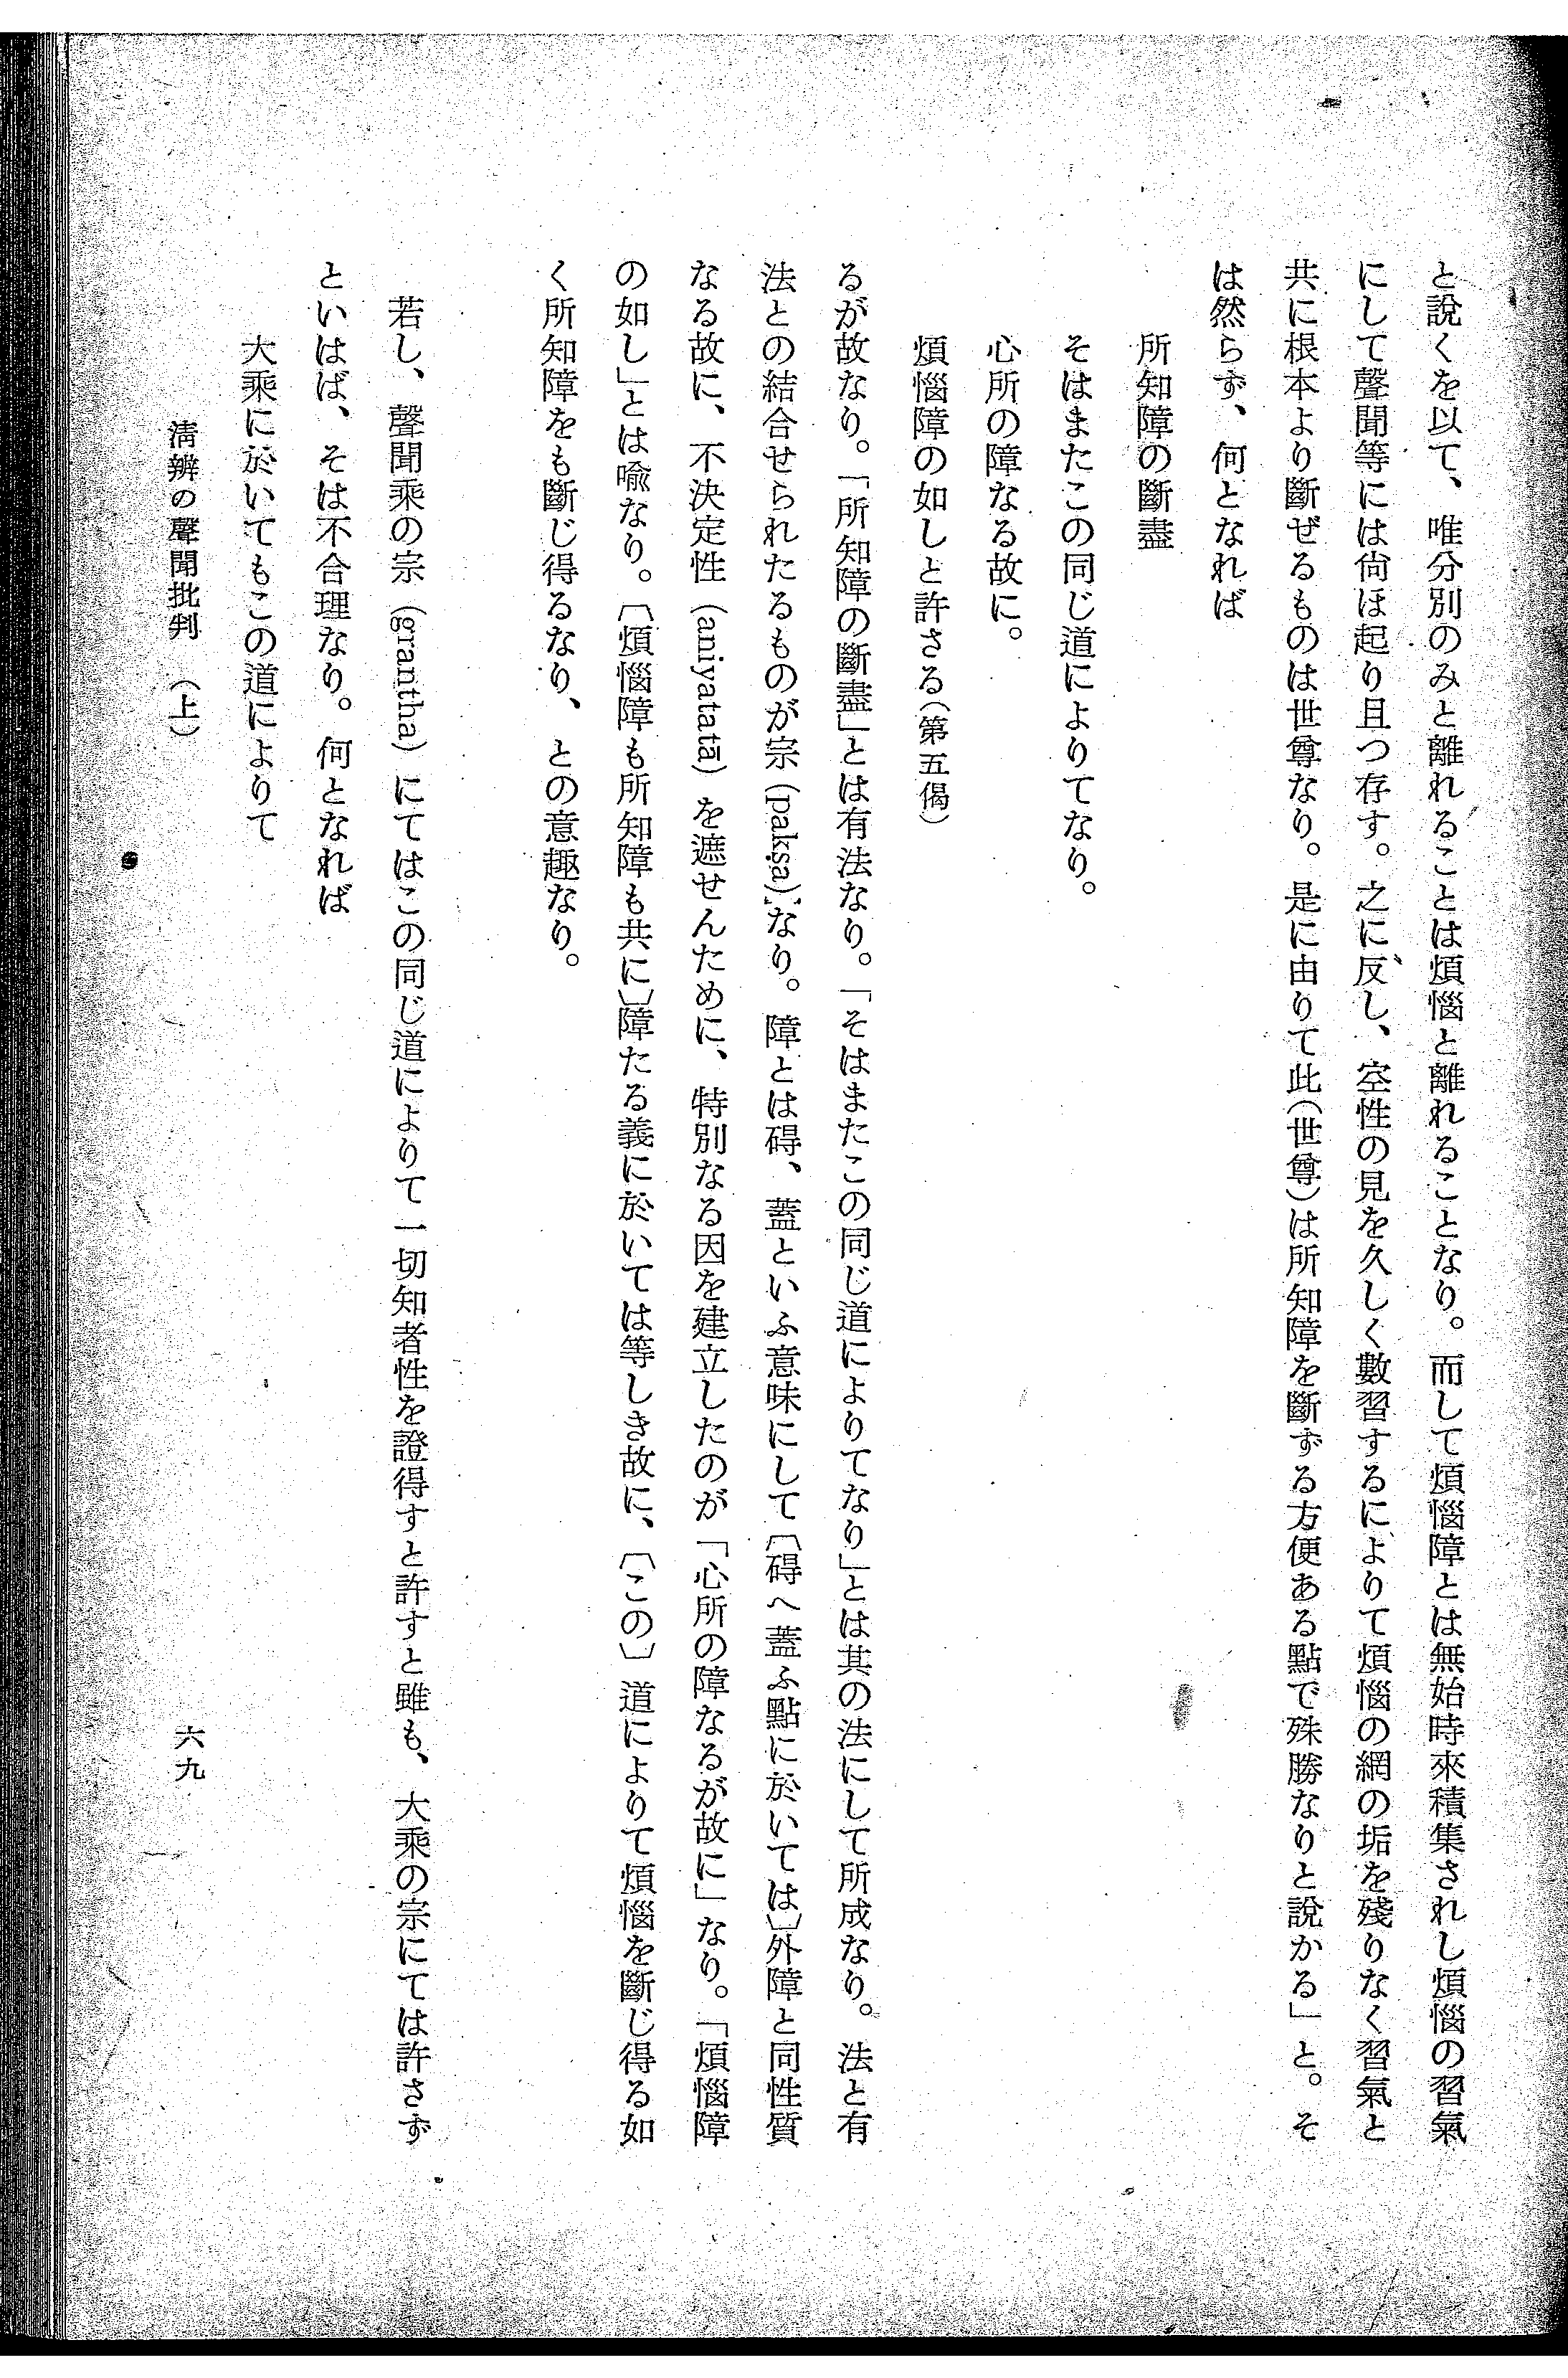 と說くを以て、唯分別のみと離れることは煩惱と離れることなり。而して煩惱障とは無始時來積集されし煩惱の習氣
にして聲聞等には尙ほ起り且つ存す。之に反し、空性の見を久しく數習するによりて煩惱の網の垢を殘りなく習氣と
共に根本より斷ぜるものは世尊なり。是に由りて此（世尊）は所知障を斷ずる方便ある點で殊勝なりと說かる」と。そ
は然らず、何となれば
所知障の斷盡
そはまたこの同じ道によりてなり。
心所の障なる故に。
煩惱障の如しと許さる（第五偈）
るが故なり。「所知障の斷盡」とは有法なり。「そはまたこの同じ道によりてなり」とは其の法にして所成なり。法と有
法との結合せられたるものが宗（pakṣa）なり。障とは碍、蓋といふ意味にして〔碍へ蓋ふ點に於いては〕外障と同性質
なる故に、不決定性（aniyatatā）を遮せんために、特別なる因を建立したのが「心所の障なるが故に」なり。「煩惱障
の如し」とは喩なり。〔煩惱障も所知障も共に〕障たる義に於いては等しき故に、〔この〕道によりて煩惱を斷じ得る如
く所知障をも斷じ得るなり、との意趣なり。
若し、聲聞乘の宗（grantha）にてはこの同じ道によりて一切知者性を證得すと許すと雖も、大乘の宗にては許さず
といはば、そは不合理なり。何となれば
大乘に於いてもこの道によりて
淸辨の聲聞批判（上）
六九